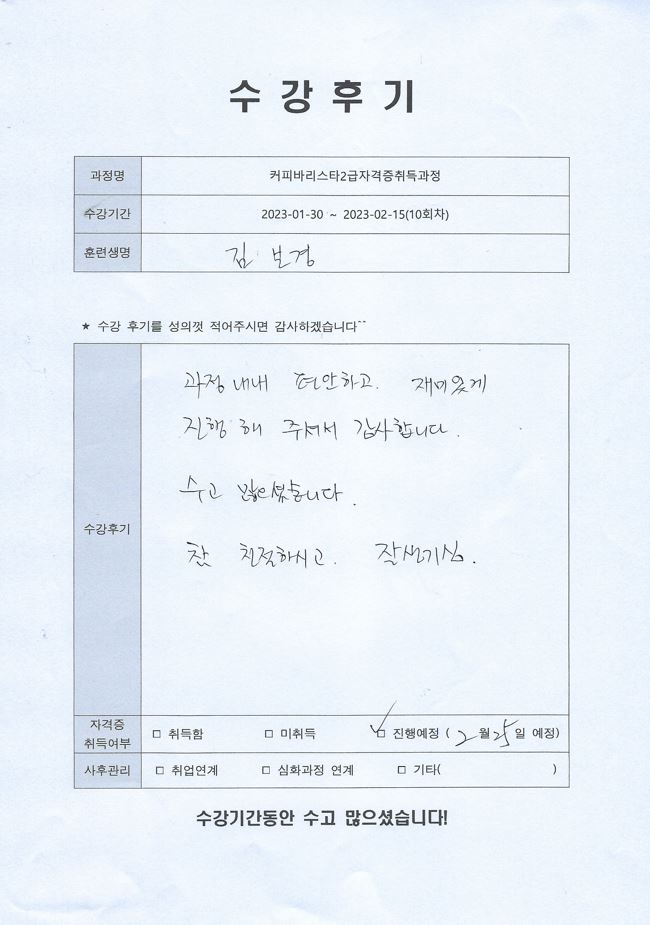 수강후기
과정명 커피바리스타2급자격증취득과정
수강기간 2023-01-30 ~ 2023-02-15(10회차)
훈련생명 김 보경
★ 수강 후기를 성의껏 적어주시면 감사하겠습니다^^
수강후기
과정 내내 편안하고. 재미있게
진행 해 주셔서 감사합니다.
수고 많으셨습니다.
참 친절하시고. 잘생기심.
자격증
취득여부 □ 취득함 □ 미취득 ☑ 진행예정 ( 2월 25일 예정)
사후관리 □ 취업연계 □ 심화과정 연계 □ 기타( )
수강기간동안 수고 많으셨습니다!